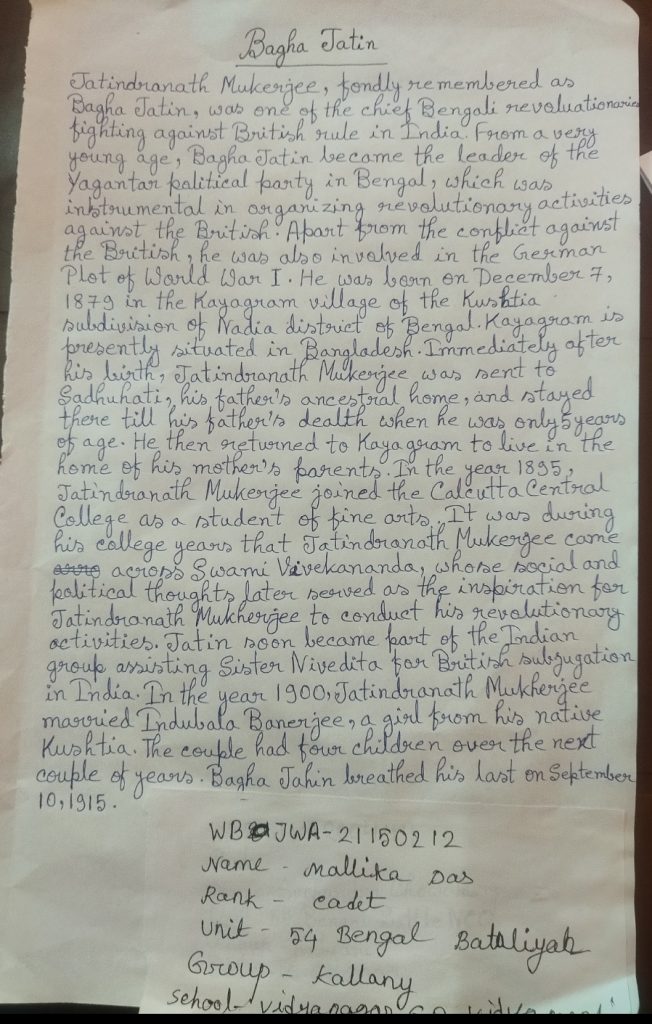 Bagha Jatin
Jatindranath Mukerjee, fondly remembered as
Bagha Jatin, was one of the chief Bengali revoluationaries
fighting against British rule in India. From a very
young age, Bagha Jatin became the leader of the
Yagantar political party in Bengal, which was
instrumental in organizing revolutionary activities
against the British. Apart from the conflict against
the British, he was also involved in the German
Plot of World War I. He was born on December 7,
1879 in the Kayagram village of the Kushtia
subdivision of Nadia district of Bengal. Kayagram is
presently situated in Bangladesh. Immediately after
his birth, Jatindranath Mukerjee was sent to
Sadhuhati, his father's ancestral home, and stayed
there till his father's dealth when he was only 5 years
of age. He then returned to Kayagram to live in the
home of his mother's parents. In the year 1895,
Jatindranath Mukerjee joined the Calcutta Central
College as a student of fine arts. It was during
his college years that Jatindranath Mukerjee came
across Swami Vivekananda, whose social and
political thoughts later served as the inspiration for
Jatindranath Mukherjee to conduct his revolutionary
activities. Jatin soon became part of the Indian
group assisting Sister Nivedita for British subjugation
in India. In the year 1900, Jatindranath Mukherjee
married Indubala Banerjee, a girl from his native
Kushtia. The couple had four children over the next
couple of years. Bagha Jahin breathed his last on September
10, 1915.
WB JWA-21150212
Name - Mallika Das
Rank - cadet
Unit - 54 Bengal Bataliyah
Group - Kallany
School - Vidyanagar